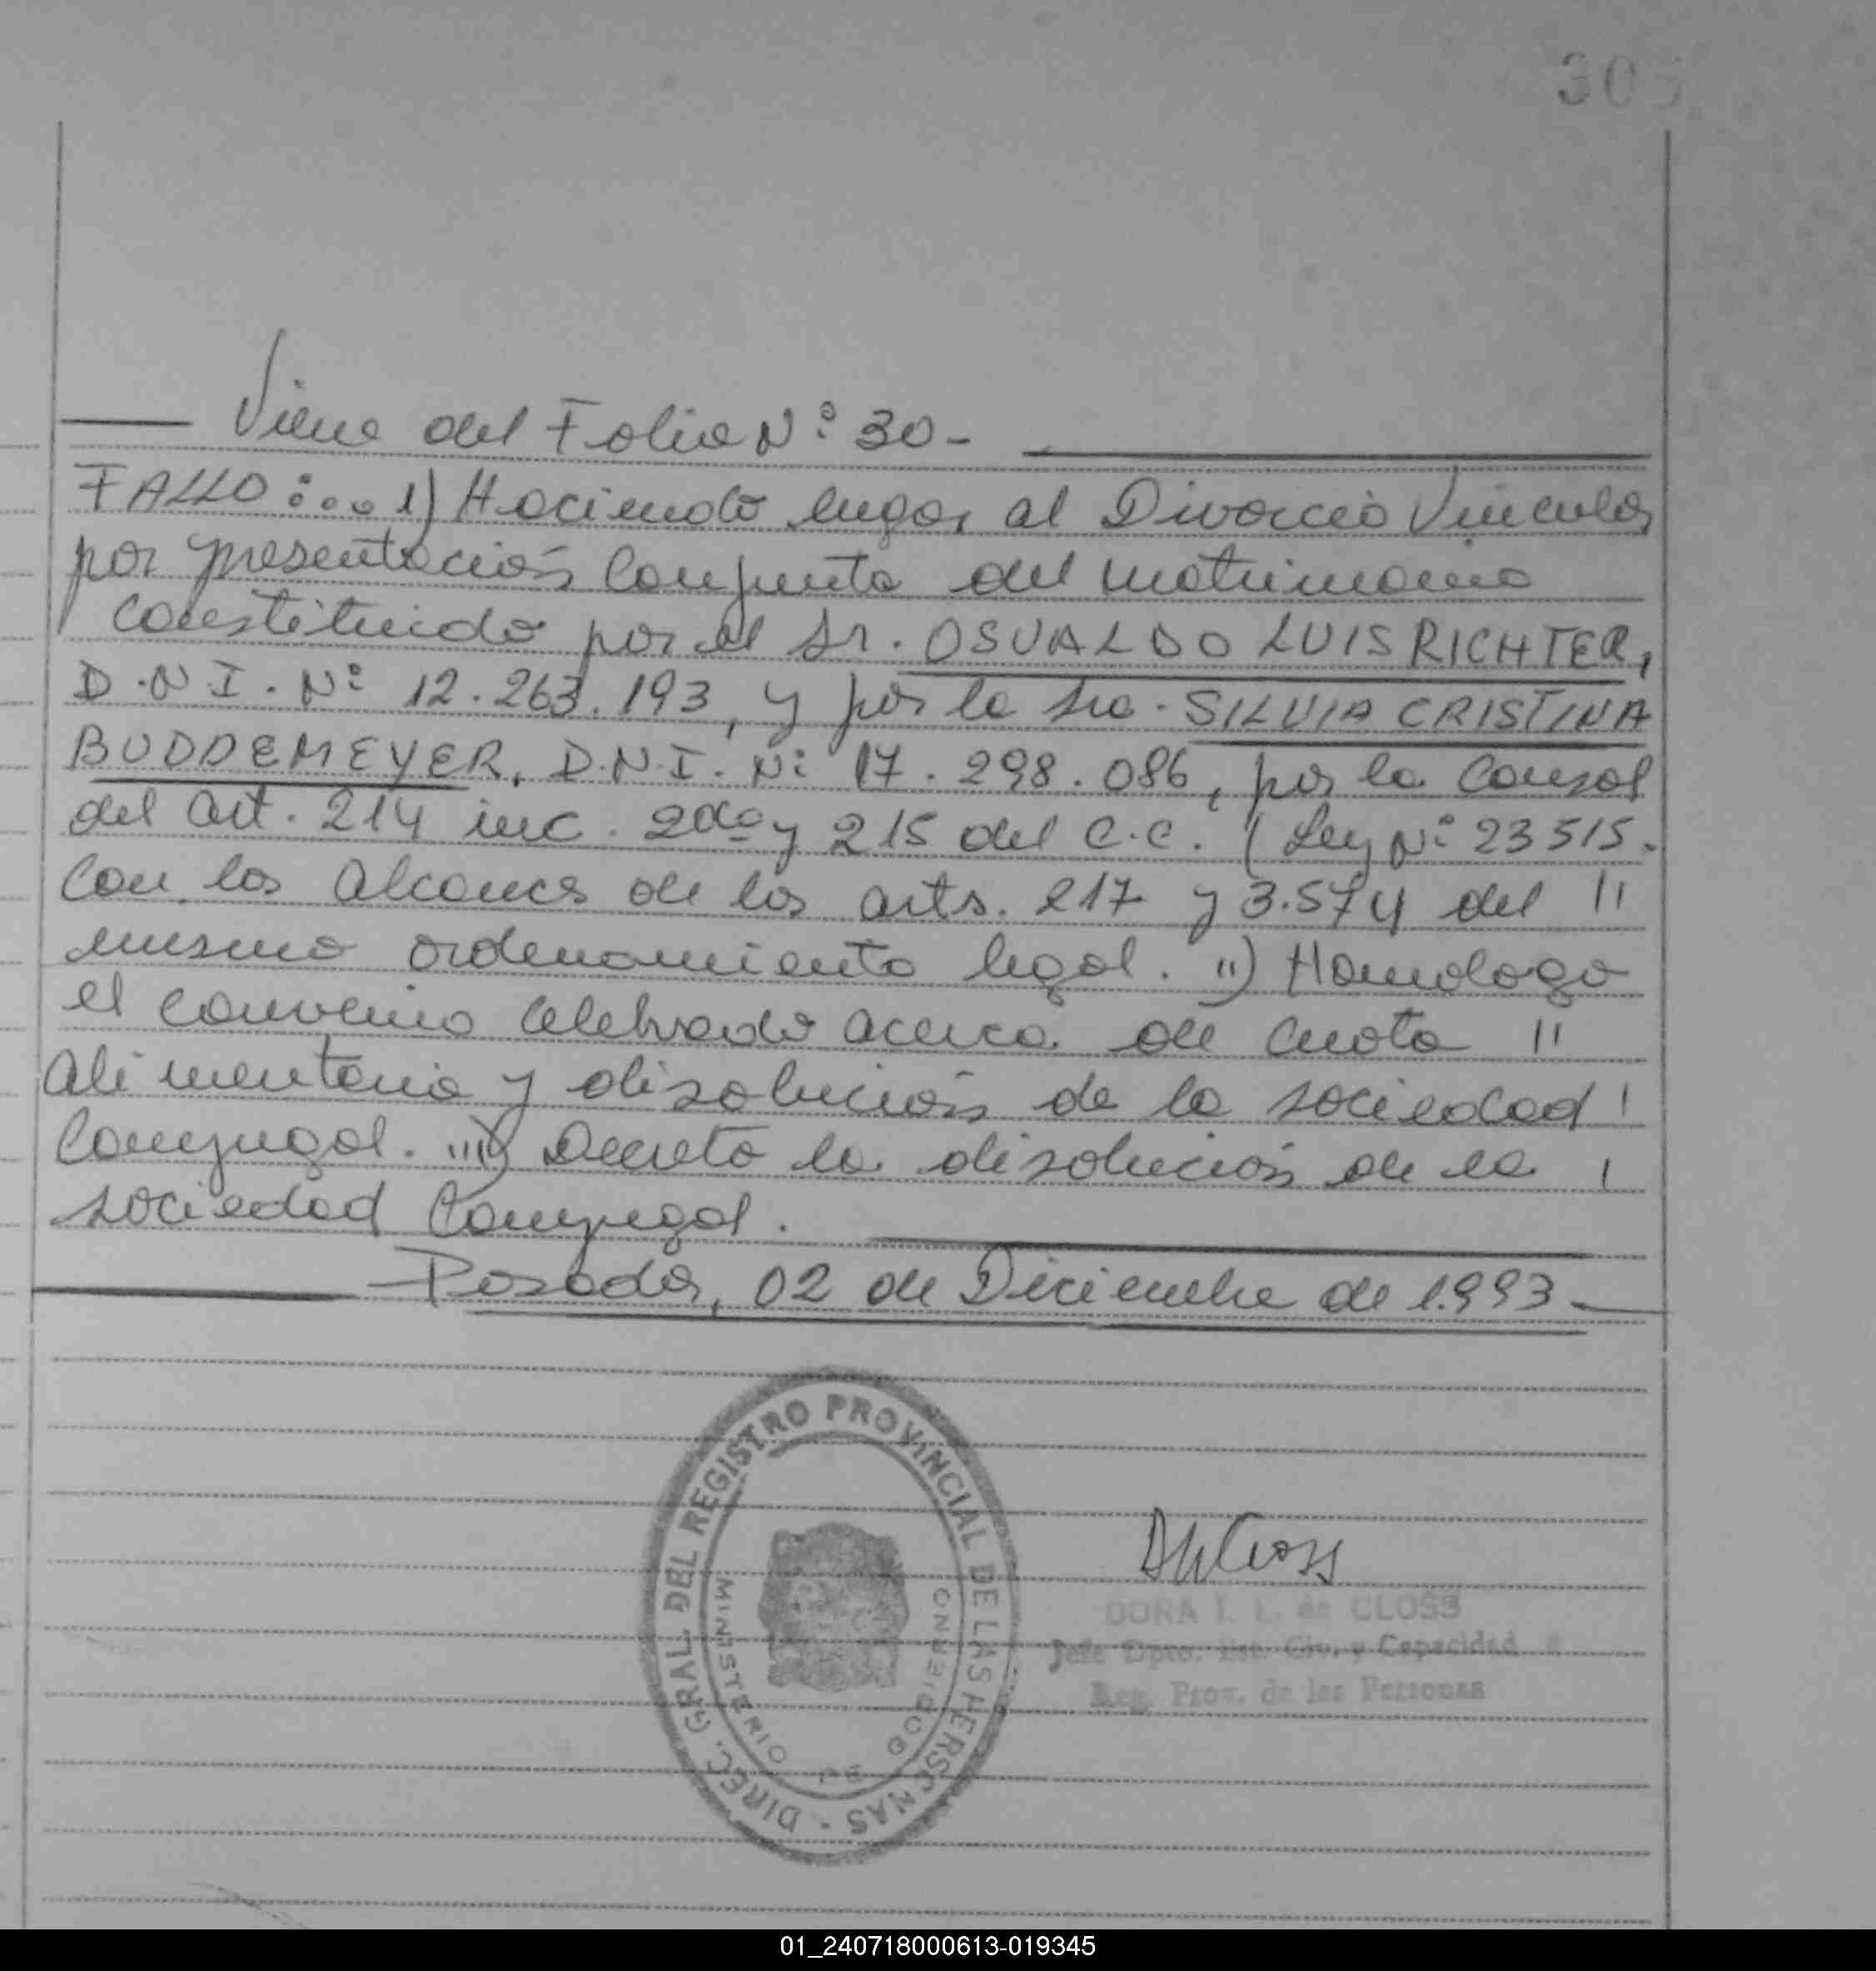 30
Viene del Folio Nº: 30-
FALLO:... 1) Haciendo lugar al Divorcio Vincular
por presentación Conjunta del matrimonio
Constituido por el Sr. OSVALDO LUIS RICHTER,
D.N.I. Nº 12.263.193, y por la Sra. SILVIA CRISTINA
BUDDEMEYER, D.N.I. Nº 17.298.086, por la Causal
del art. 214 inc. 2do y 215 del C.C. (Ley Nº 23515.
Con los alcances de los arts. 217 y 3.574 del "
mismo ordenamiento legal. II) Homologo
el convenio Celebrado acerca de Cuota "
alimentaria y disolución de la sociedad '
Conyugal. III) Decreto la disolución de la '
sociedad Conyugal.
Posadas, 02 de Diciembre de 1.993.
DIREC. GRAL. DEL REGISTRO PROVINCIAL DE LAS PERSONAS -
MINISTERIO DE GOBIERNO
DORA I. L. de CLOSS
Jefe Dpto. Est. Civ. y Capacidad
Reg. Prov. de las Personas
01_240718000613-019345